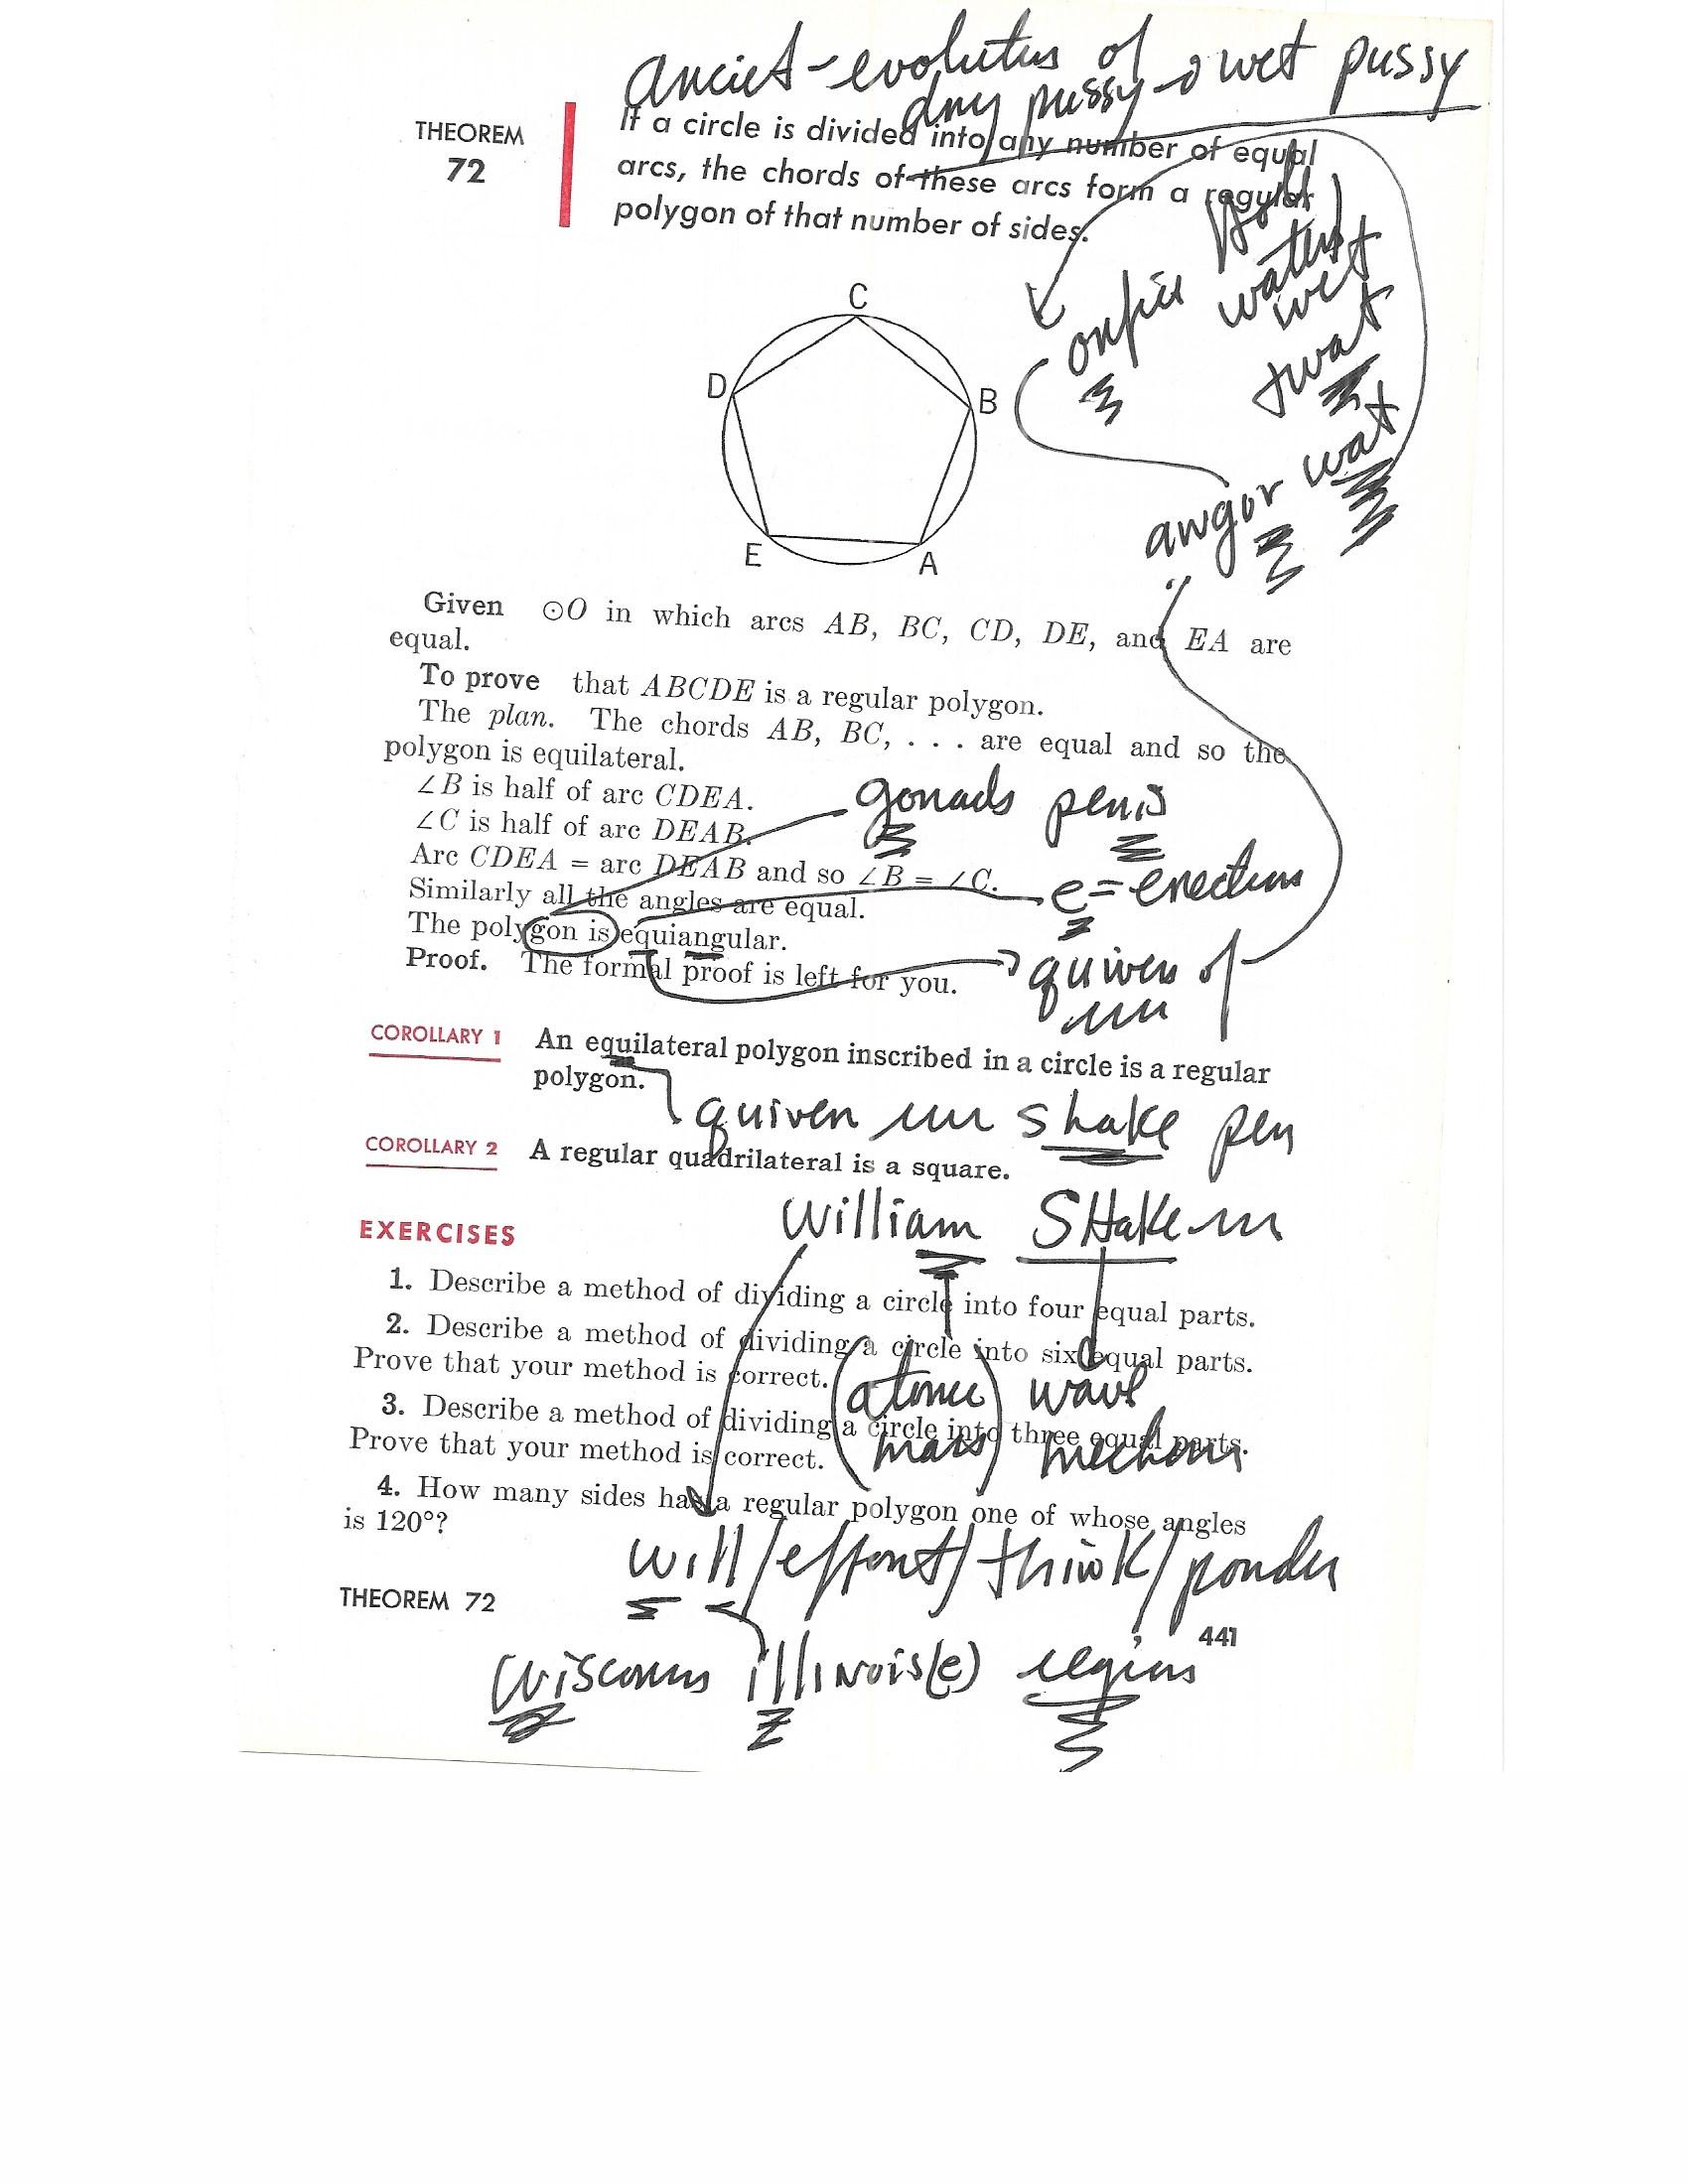 anciet-evolutus of
dry pussy → wet pussy
THEOREM
72
If a circle is divided into any number of equal
arcs, the chords of these arcs form a regular
polygon of that number of sides.
wet
twat
wat
angor
C
D
B
E
A
Given ⊙O in which arcs AB, BC, CD, DE, and EA are
equal.
To prove that ABCDE is a regular polygon.
The plan. The chords AB, BC, . . . are equal and so the
polygon is equilateral.
∠B is half of arc CDEA.
gonads penis
∠C is half of arc DEAB.
Arc CDEA = arc DEAB and so ∠B = ∠C.
e = erection
Similarly all the angles are equal.
The polygon is equiangular.
Proof. The formal proof is left for you.
quiver of
COROLLARY 1 An equilateral polygon inscribed in a circle is a regular
polygon.
quiver shake pen
COROLLARY 2 A regular quadrilateral is a square.
William SHake
EXERCISES
1. Describe a method of dividing a circle into four equal parts.
2. Describe a method of dividing a circle into six equal parts.
Prove that your method is correct.
(atomic mars) wave
3. Describe a method of dividing a circle into three equal parts.
Prove that your method is correct.
4. How many sides has a regular polygon one of whose angles
is 120°?
will/effort/think/ponder
THEOREM 72
441
illinois(e)